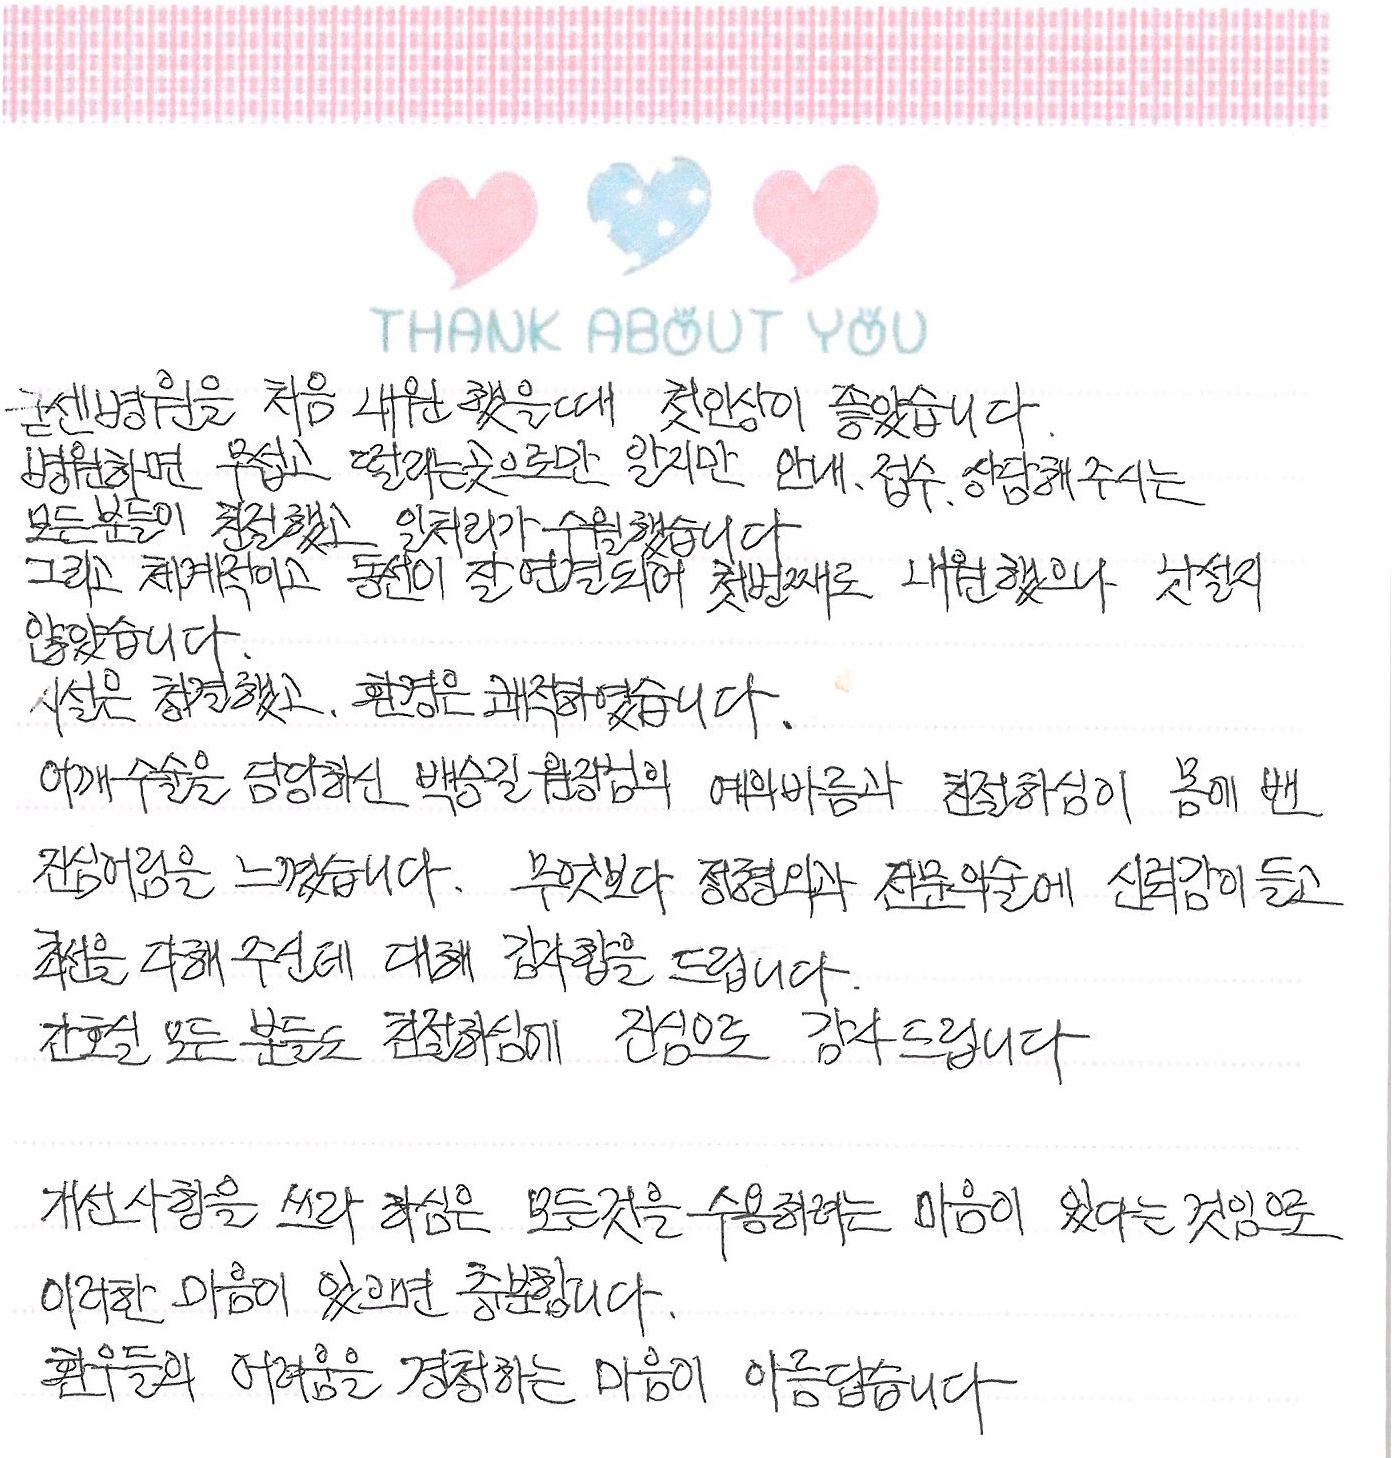 THANK ABOUT YOU
굳센병원을 처음 내원했을때 첫인상이 좋았습니다.
병원하면 무섭고 떨리는곳으로만 알지만 안내. 접수. 상담해주시는
모든분들이 친절했고 일처리가 수월했습니다
그리고 체계적이고 동선이 잘 연결되어 첫번째로 내원했으나 낯설지
않았습니다.
시설은 청결했고. 환경은 쾌적하였습니다.
어깨수술을 담당하신 백승길 원장님의 예의바름과 친절하심이 몸에 밴
진심어림을 느꼈습니다. 무엇보다 정형외과 전문의술에 신뢰감이 들고
최선을 다해 주신데 대해 감사함을 드립니다.
간호실 모든 분들도 친절하심에 진심으로 감사드립니다
개선사항을 쓰라 하심은 모든것을 수용하려는 마음이 있다는 것임으로
이러한 마음이 있으면 충분합니다.
환우들의 어려움을 경청하는 마음이 아름답습니다